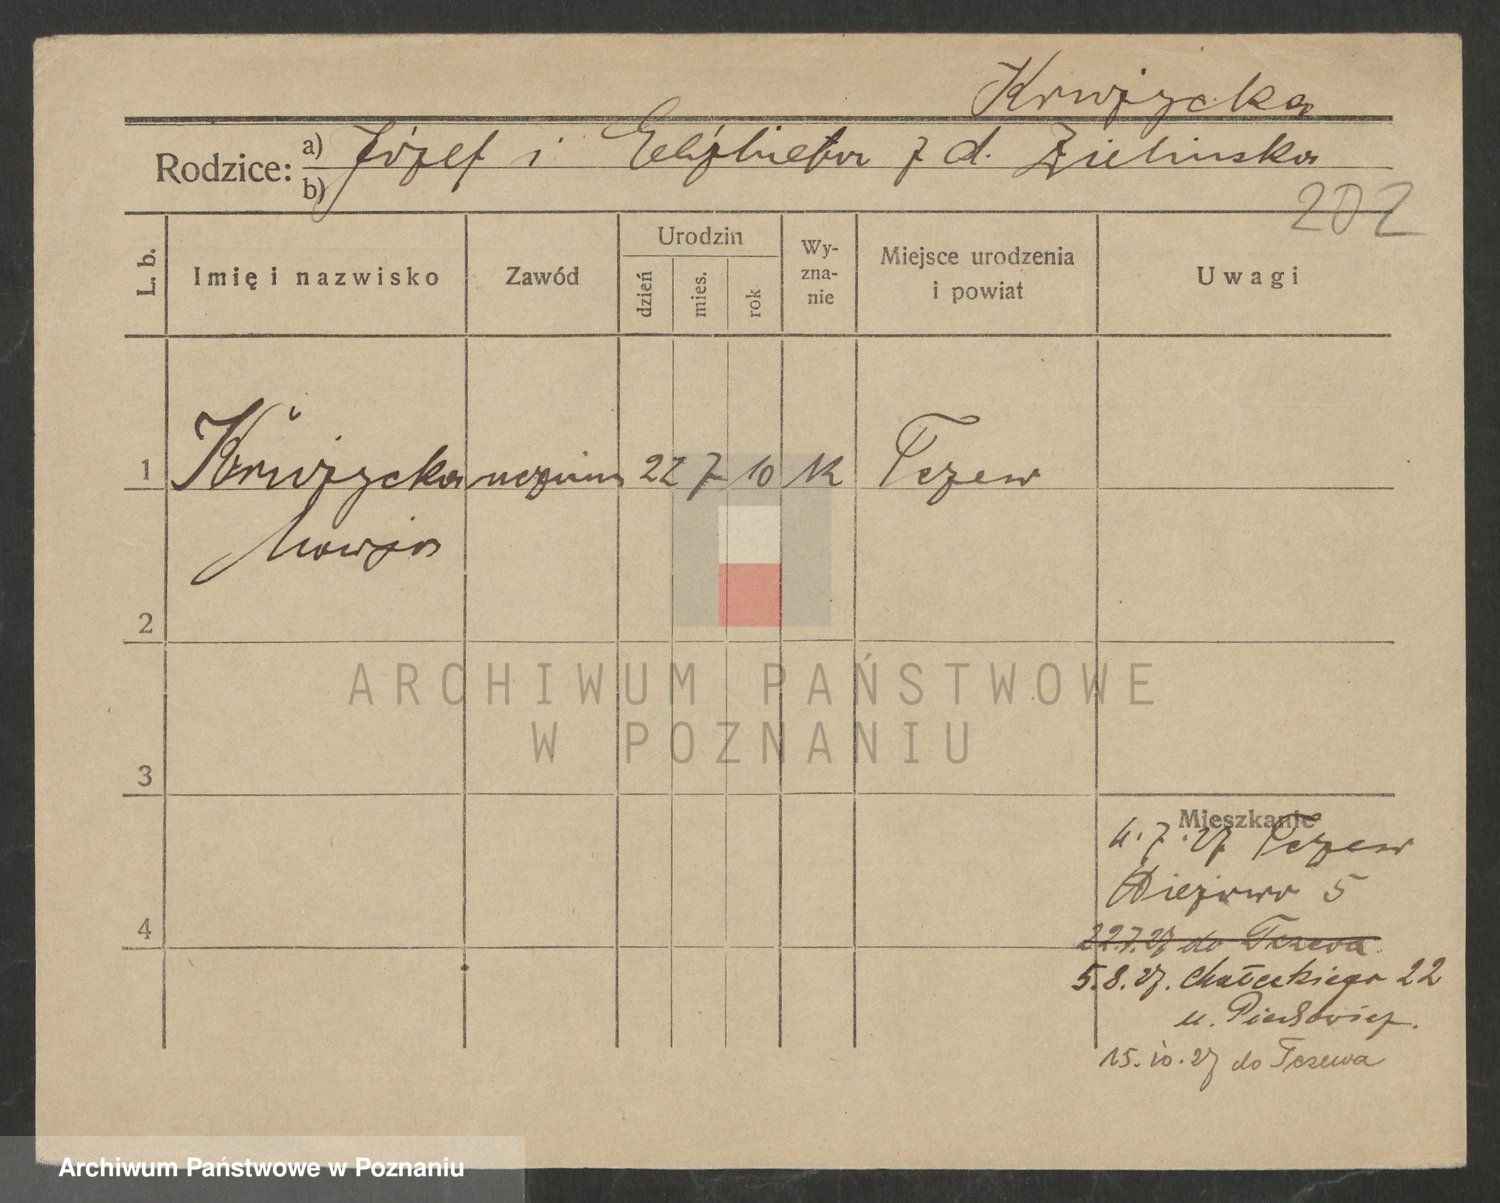 Krwżycka
Rodzice: a) Józef i Elżbieta z d. Zielinska
b)
202
L. b.
Imię i nazwisko
Zawód
Urodzin
dzień
mies.
rok
Wy-
zna-
nie
Miejsce urodzenia
i powiat
Uwagi
1 Krwżycka 22 7 10 K Tczew
Marja
2
ARCHIWUM PAŃSTWOWE
W POZNANIU
3
Mieszkanie
4.7.27 Tczew
5
4
22.7.27 do Tczewa
5.8.27. Małeckiego 22
u.
15.10.27 do Tczewa
Archiwum Państwowe w Poznaniu